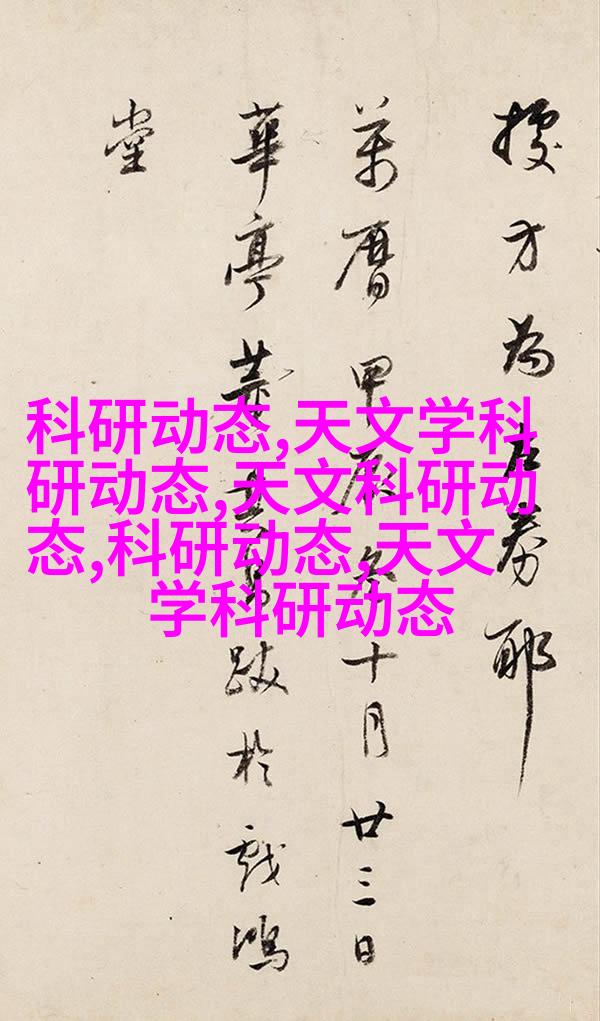 據方為左券耶
萬曆甲辰冬十月廿三日
華亭董其昌跋於戲鴻
堂
科研动态,天文学科
研动态,天文科研动
态,科研动态,天文
学科研动态